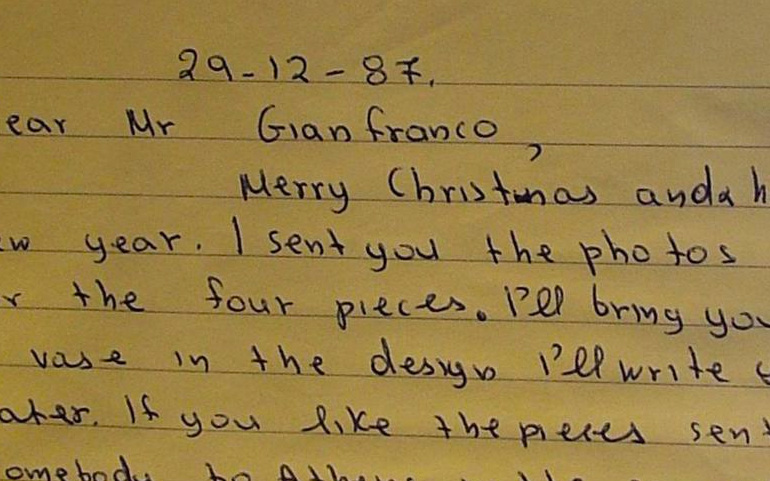 29-12-87.
ear Mr Gianfranco,
Merry Christmas and a h
ew year. I sent you the photos
r the four pieces. I'll bring you
vase in the design I'll write
ater. If you like the pieces sent
omebody to